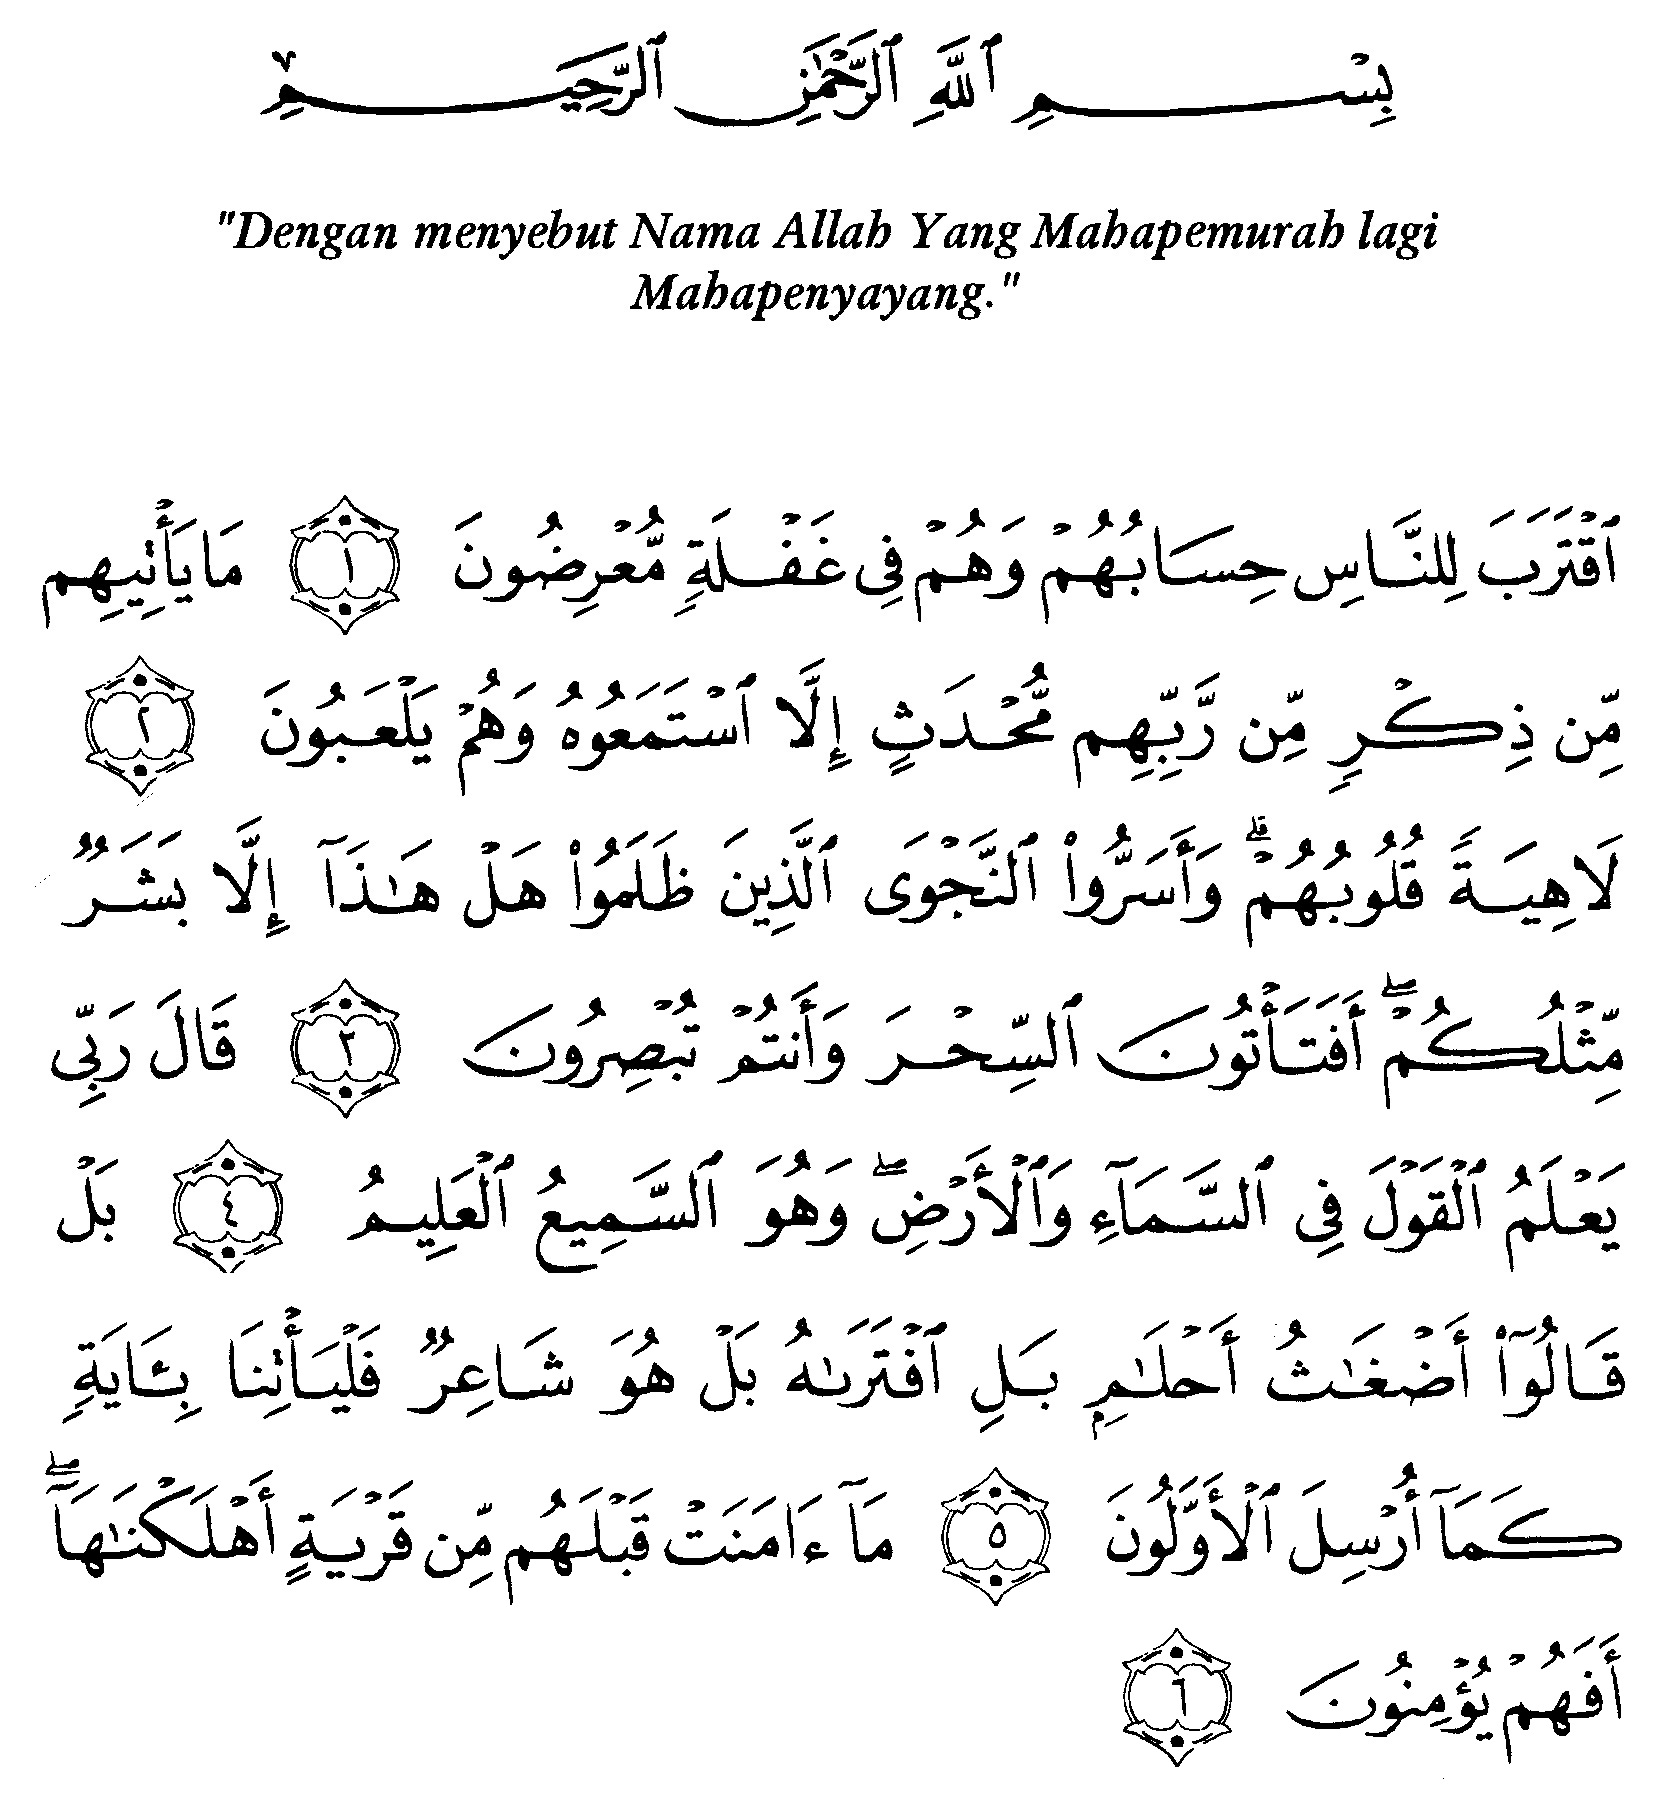 بِسْمِ ٱللَّهِ ٱلرَّحْمَٰنِ ٱلرَّحِيمِ
"Dengan menyebut Nama Allah Yang Mahapemurah lagi
Mahapenyayang."
ٱقْتَرَبَ لِلنَّاسِ حِسَابُهُمْ وَهُمْ فِى غَفْلَةٍ مُّعْرِضُونَ ١ مَا يَأْتِيهِم
مِّن ذِكْرٍ مِّن رَّبِّهِم مُّحْدَثٍ إِلَّا ٱسْتَمَعُوهُ وَهُمْ يَلْعَبُونَ ٢
لَاهِيَةً قُلُوبُهُمْ ۗ وَأَسَرُّوا۟ ٱلنَّجْوَى ٱلَّذِينَ ظَلَمُوا۟ هَلْ هَـٰذَآ إِلَّا بَشَرٌ
مِّثْلُكُمْ ۖ أَفَتَأْتُونَ ٱلسِّحْرَ وَأَنتُمْ تُبْصِرُونَ ٣ قَالَ رَبِّى
يَعْلَمُ ٱلْقَوْلَ فِى ٱلسَّمَآءِ وَٱلْأَرْضِ ۖ وَهُوَ ٱلسَّمِيعُ ٱلْعَلِيمُ ٤ بَلْ
قَالُوٓا۟ أَضْغَـٰثُ أَحْلَـٰمٍۭ بَلِ ٱفْتَرَىٰهُ بَلْ هُوَ شَاعِرٌ فَلْيَأْتِنَا بِـَٔايَةٍ
كَمَآ أُرْسِلَ ٱلْأَوَّلُونَ ٥ مَآ ءَامَنَتْ قَبْلَهُم مِّن قَرْيَةٍ أَهْلَكْنَـٰهَآ ۖ
أَفَهُمْ يُؤْمِنُونَ ٦